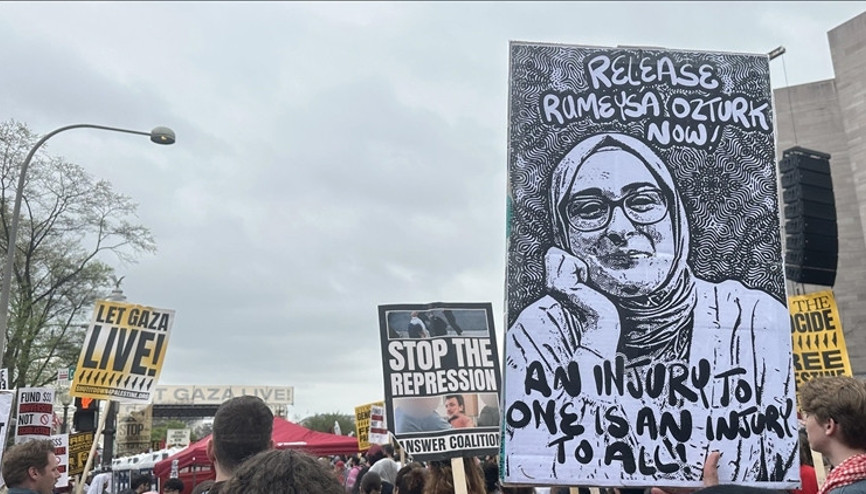 RELEASE
RUMEYSA OZTURK
NOW!
AN INJURY TO
ONE IS AN INJURY
TO ALL!
LET GAZA
LIVE!
SHUTITDOWN4PALESTINE.ORG
STOP THE
REPRESSION
ANSWER COALITION
LET GAZA LIVE!
FUND
STOP
THE